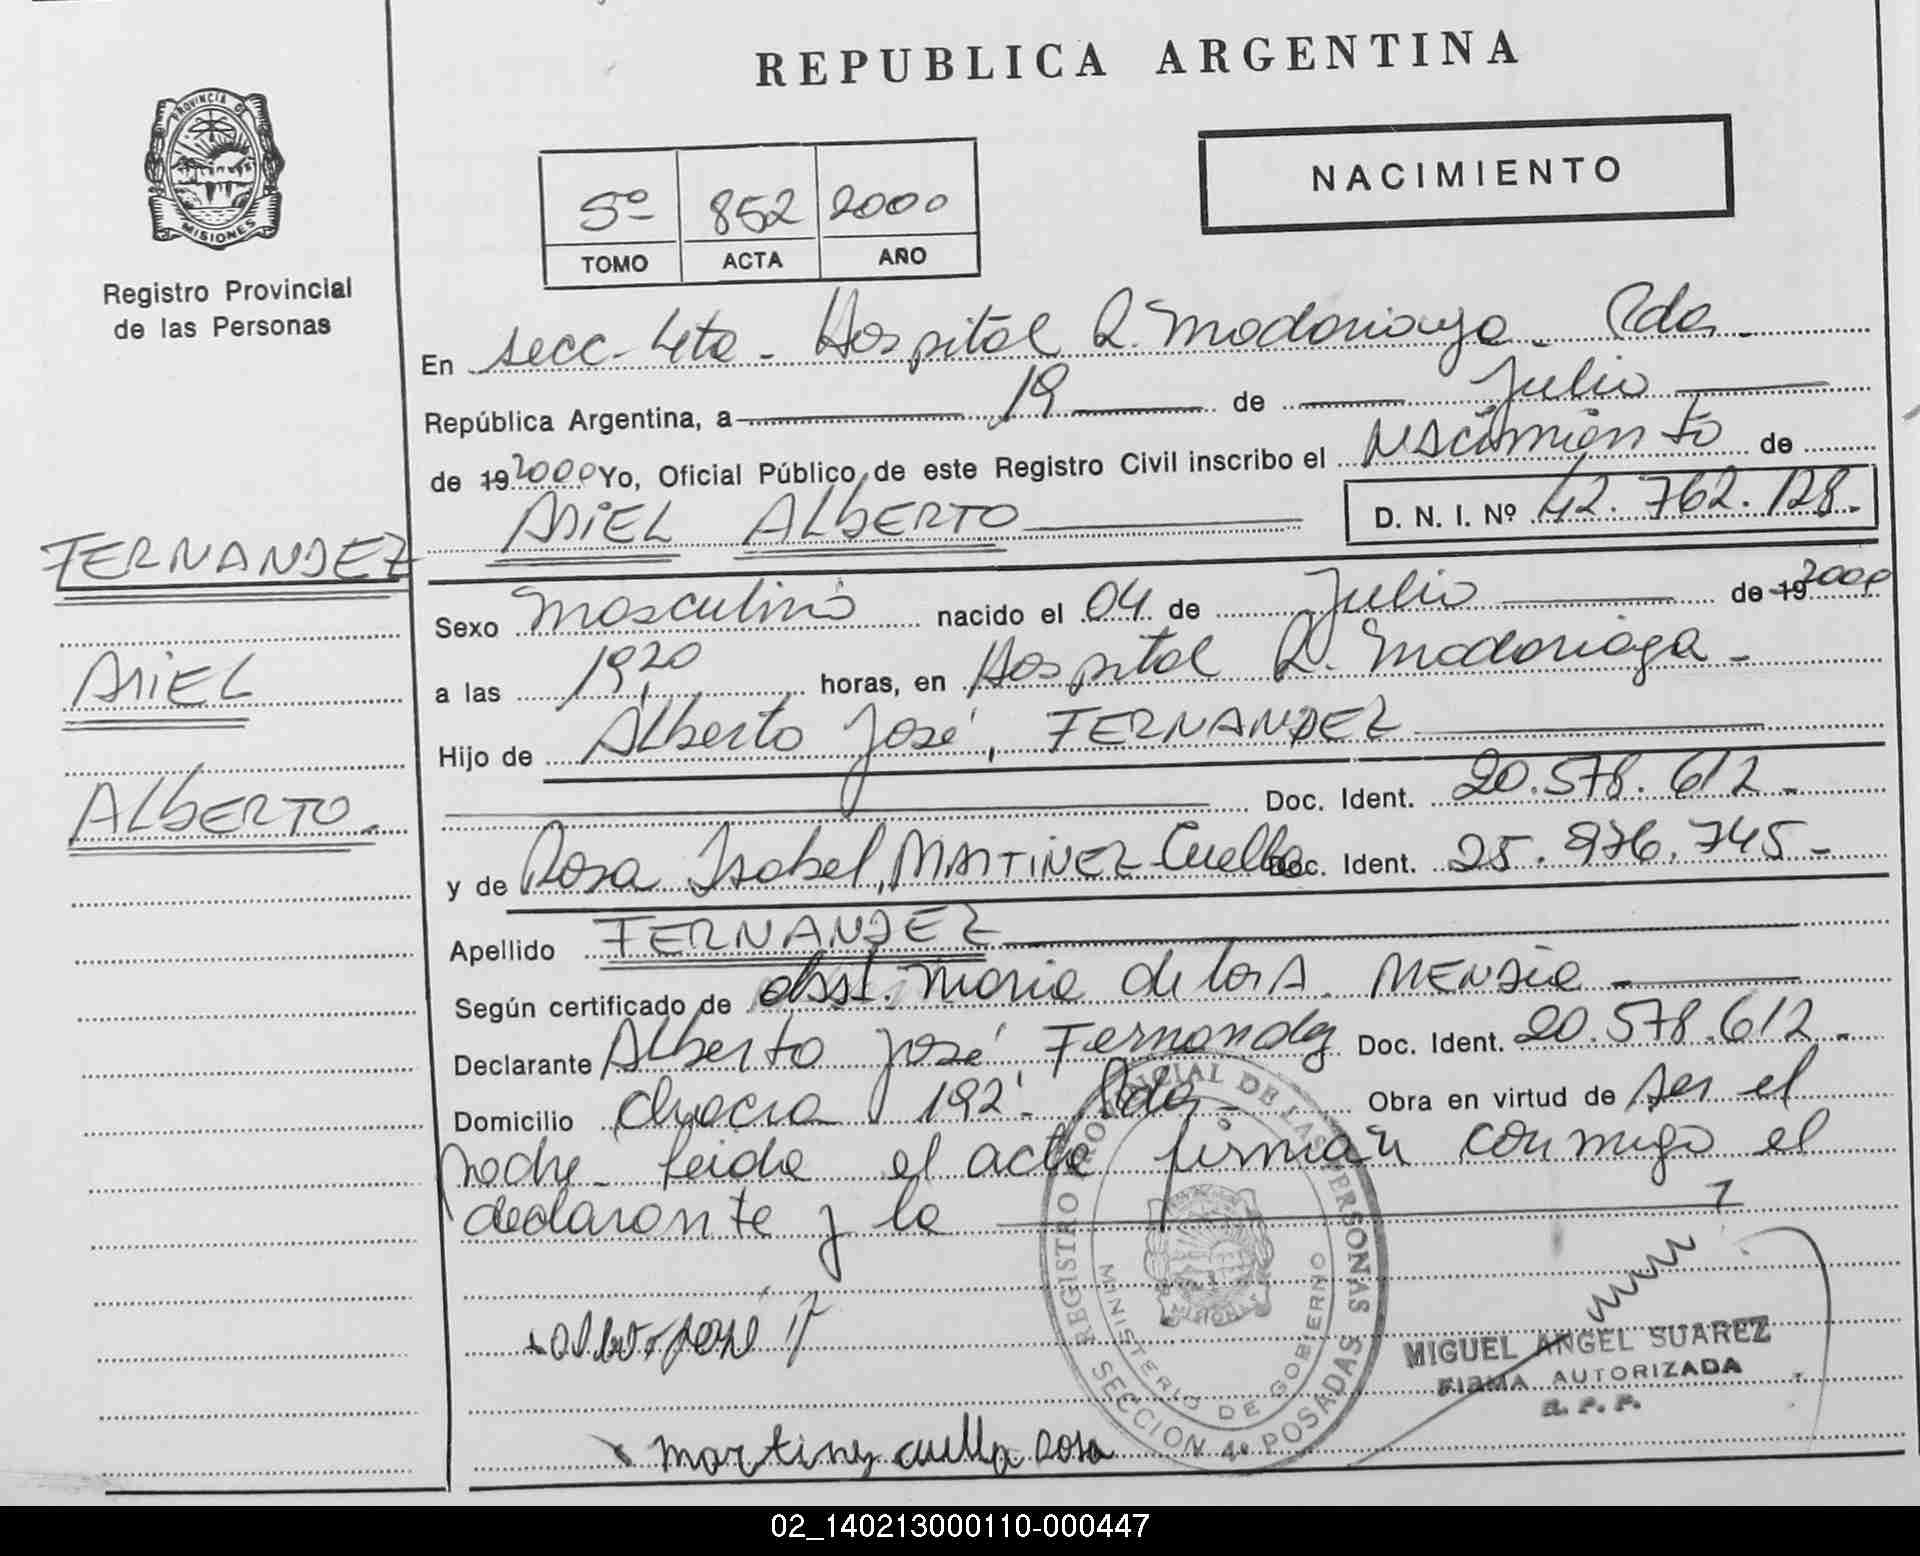 REPUBLICA ARGENTINA
PROVINCIA DE
MISIONES
Registro Provincial
de las Personas
NACIMIENTO
5º 852 2000
TOMO ACTA AÑO
En secc. 4ta - Hospital R. Madariaga - Pdas -
República Argentina, a 19 de Julio
de 19 2000 Yo, Oficial Público de este Registro Civil inscribo el Nacimiento de
ARIEL ALBERTO D. N. I. Nº 42.762.128.-
FERNANDEZ
ARIEL
ALBERTO.-
Sexo Masculino nacido el 04 de Julio de 19 2000
a las 19,20 horas, en Hospital R. Madariaga -
Hijo de Alberto José, FERNANDEZ
Doc. Ident. 20.578.612.-
y de Rosa Isabel, MARTINEZ Cuella Doc. Ident. 25.976.745 -
Apellido FERNANDEZ
Según certificado de obst. Maria de los A.
Declarante Alberto José Fernandez Doc. Ident. 20.578.612.-
Domicilio chacra 192. Pdas - Obra en virtud de ser el
padre - leida el acta firman conmigo el
declarante y la
REGISTRO PROVINCIAL DE LAS PERSONAS
MINISTERIO DE GOBIERNO
SECCION 4ª POSADAS
MISIONES
MIGUEL ANGEL SUAREZ
FIRMA AUTORIZADA
R. P. P.
martinez cuella Rosa
02_140213000110-000447